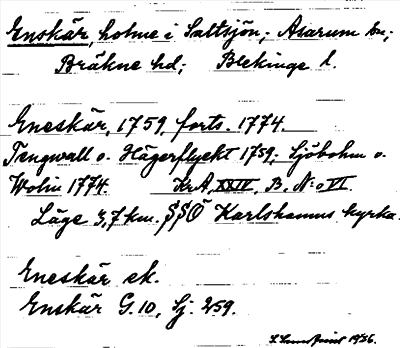 Enskär, holme i Saltsjön; Asarum sn;
Bräkne hd; Blekinge l.
Eneskär, 1759, forts. 1774.
Tengwall o. Hägerflyckt 1759; Sjöbohm o.
Wolin 1774. KrA, XXIV, B. N:o VI.
Läge 3,7 km. SSO Karlshamns kyrka.
Eneskär ek.
Enskär G. 10, Sj. 259.
1936.